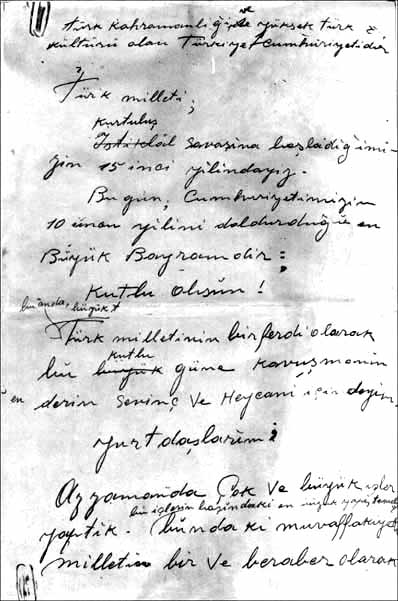 türk kahramanlığı ve yüksek türk
kültürü olan Türkiye Cumhuriyetidir
Türk milleti;
Kurtuluş
İstiklâl savaşına başladığımı-
zın 15 inci yılındayız.
Bugün, Cumhuriyetimizin
10 uncu yılını doldurduğu en
Büyük Bayramdır:
Kutlu olsun!
bu anda, büyük
Türk milletinin bir ferdi olarak
kutlu
bu büyük güne kavuşmanın
en
derin sevinç ve heycanı içindeyim.
yurtdaşlarım:
Az zamanda Çok ve büyük işler
bu işlerin başındaki en
yaptık. bundaki muvaffakıyeti
milletin bir ve beraber olarak